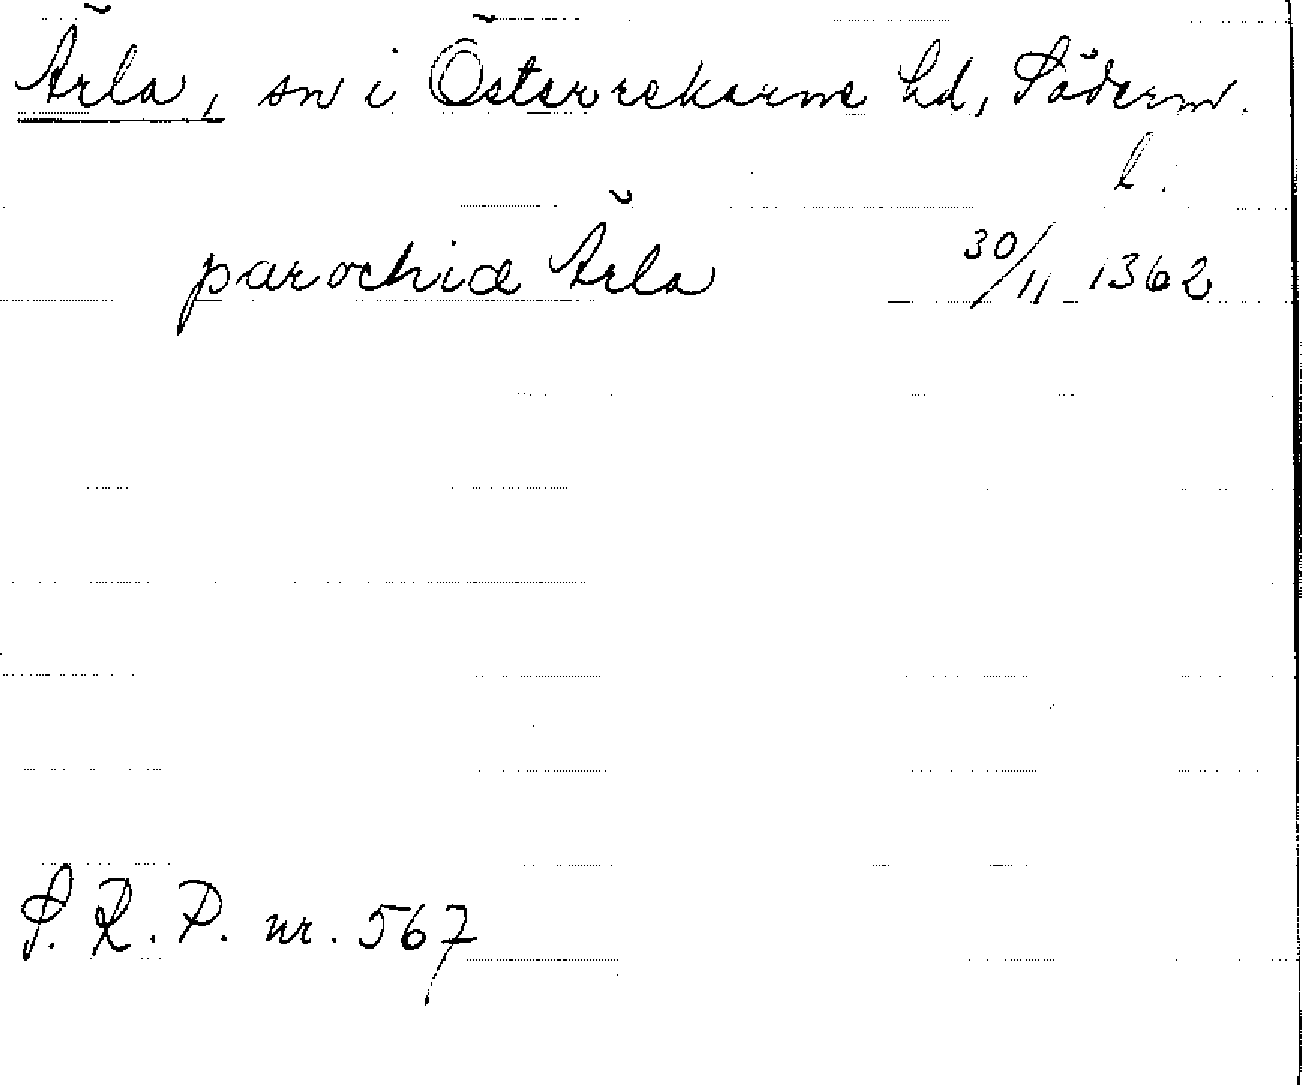 Ärla, sn i Österrekarne hd, Söderm.
l.
parochia Ärla 30/11 1362
S. R. P. nr. 567